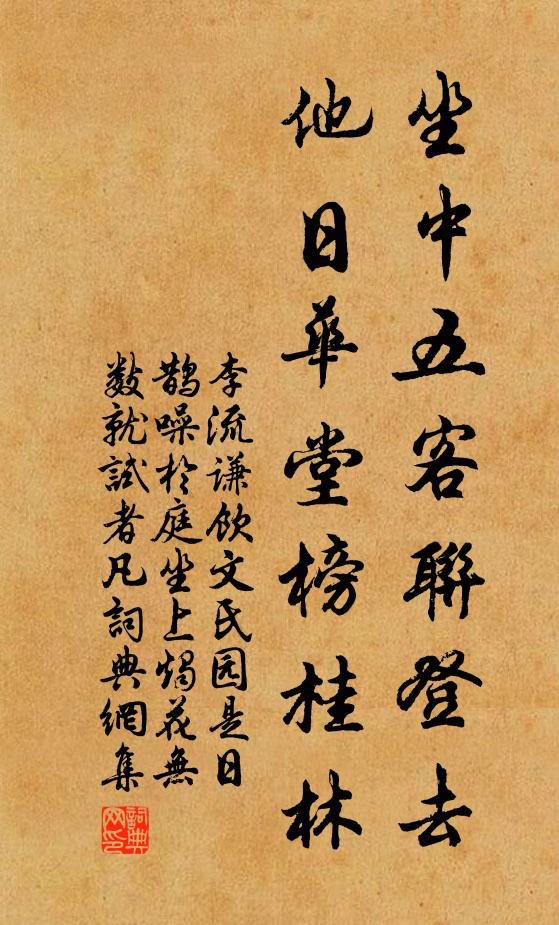 坐中五客聯登去
他日華堂榜桂林
李流謙飲文氏园是日
鵲噪於庭坐上燭花無
數就試者凡詞典網集
詞典网印